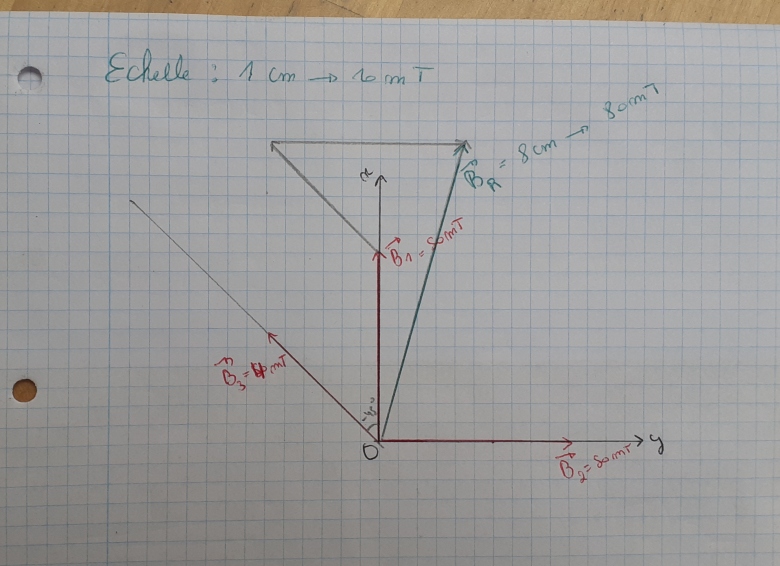 Echelle : 1 cm → 10 mT
B⃗R = 8 cm → 80mT
x
B⃗1 = 50mT
B⃗3 = mT
O
y
B⃗2 = 50mT